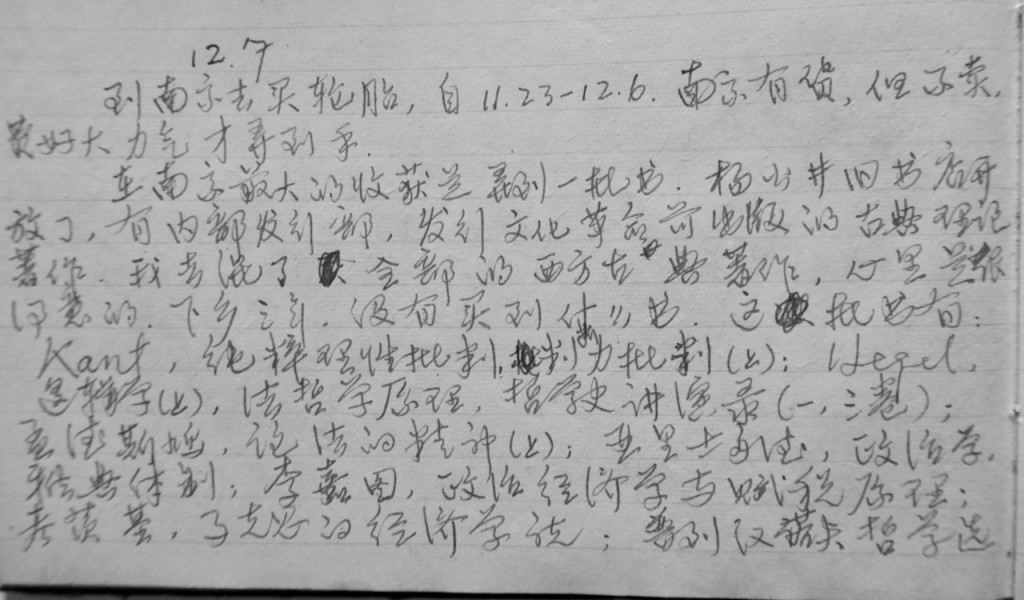 12.7
到南京去买轮胎，自11.23-12.6.南京有货，但不卖，
费好大力气才弄到手.
在南京最大的收获是弄到一批书.杨公井旧书店开
放了，有内部发行部，发行文化革命前出版的古典理论
著作.我去混了全部的西方古典著作，心里是很
得意的.下乡三年.没有买到什么书.这批书有：
Kant，纯粹理性批判，判断力批判(上)；Hegel，
逻辑学(上)，法哲学原理，哲学史讲演录(一，三卷)；
孟德斯鸠，论法的精神(上)；亚里士多德，政治学，
雅典体制；李嘉图，政治经济学与赋税原理；
考茨基，马克思的经济学说；普列汉诺夫哲学选